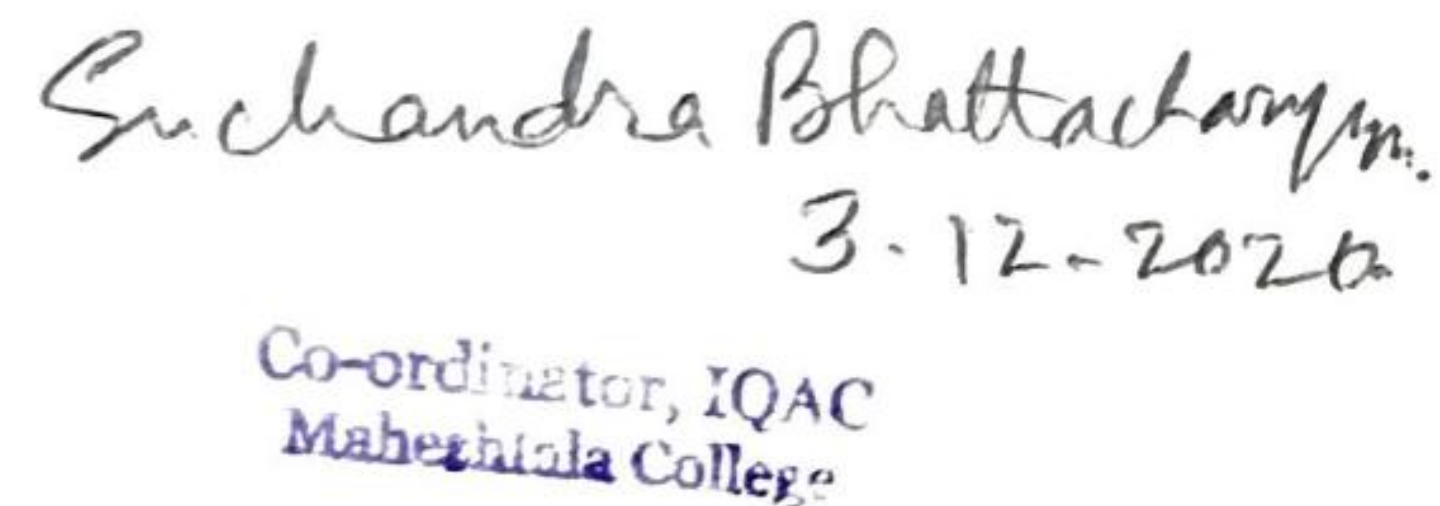 Suchandra Bhattacharyya.
3-12-2020
Co-ordinator, IQAC
Maheshtala College